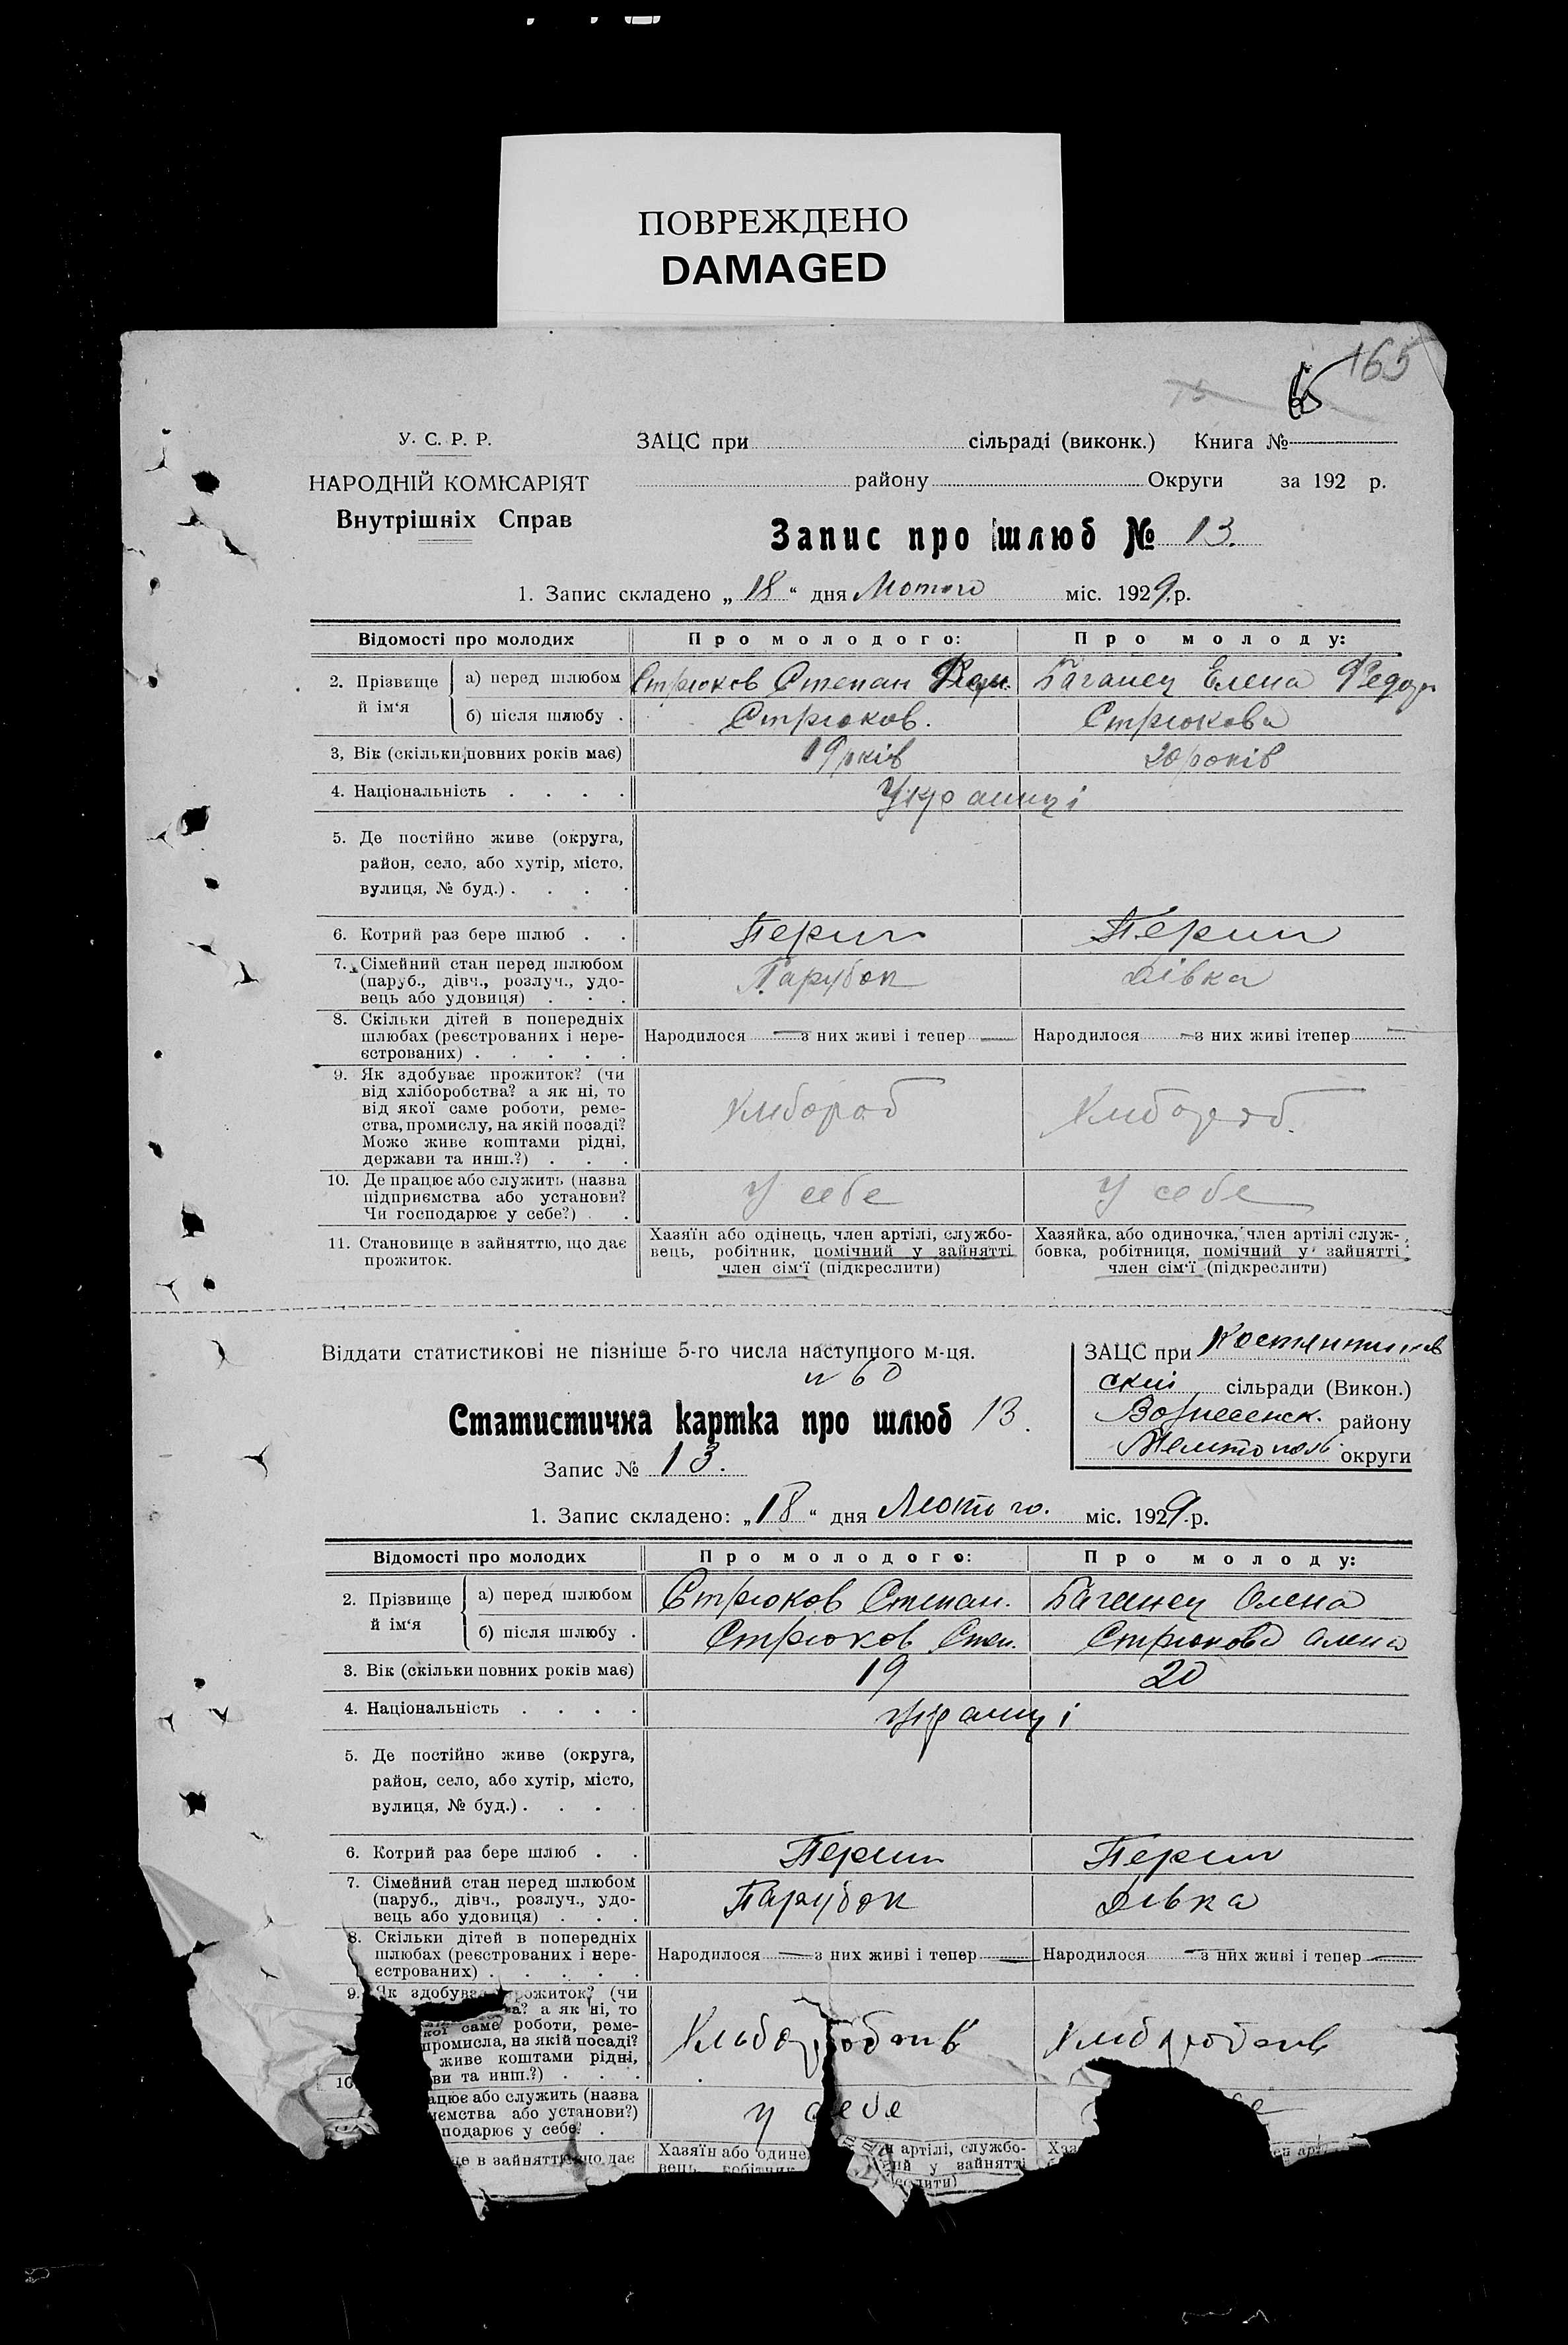 ПОВРЕЖДЕНО
DAMAGED
165
У. С. Р. Р.
НАРОДНІЙ КОМІСАРІЯТ
Внутрішніх Справ
ЗАЦС при сільраді (виконк.) Книга №
району Округи за 192 р.
Запис про шлюб № 13.
1. Запис складено „ 18 “ дня Лютого міс. 1929 р.
Відомості про молодих Про молодого: Про молоду:
2. Прізвище й ім‘я
а) перед шлюбом Стрюков Степан Баганец Елена Федор
б) після шлюбу . Стрюков. Стрюкова
3, Вік (скільки повних років має) 19 рків 20 років
4. Національність . . . . Украинці
5. Де постійно живе (округа,
район, село, або хутір, місто,
вулиця, № буд.) . . . .
6. Котрий раз бере шлюб . . Перши Перши
7. Сімейний стан перед шлюбом
(паруб., дівч., розлуч., удо-
вець або удовиця) . . . Парубок Дівка
8. Скільки дітей в попередніх
шлюбах (реєстрованих і нере-
єстрованих) . . . . .
Народилося — з них живі і тепер — Народилося — з них живі ітепер —
9. Як здобуває прожиток? (чи
від хліборобства? а як ні, то
від якої саме роботи, реме-
ства, промислу, на якій посаді?
Може живе коштами рідні,
держави та инш.?) . . .
Хлибороб Хлибороб.
10. Де працює або служить (назва
підприємства або установи?
Чи господарює у себе?) . .
У себе У себе
11. Становище в зайняттю, що дає
прожиток.
Хазяїн або одінець, член артілі, службо-
вець, робітник, помічний у зайнятті
член сім‘ї (підкреслити)
Хазяйка, або одиночка, член артілі служ-
бовка, робітниця, помічний у зайнятті
член сім‘ї (підкреслити)
Віддати статистикові не пізніше 5-го числа наступного м-ця.
№ 60
Статистична картка про шлюб 13.
Запис № 13.
ЗАЦС при Костянтинов
ский сільради (Викон.)
Вознесенск. району
Мелитополь округи
1. Запис складено: „ 18 “ дня Лютого. міс. 1929 р.
Відомості про молодих Про молодого: Про молоду:
2. Прізвище й ім‘я
а) перед шлюбом Стрюков Степан. Баганец Олена
б) після шлюбу . Стрюков Степ. Стрюкова Олена
3. Вік (скільки повних років має) 19 20
4. Національність . . . . Украинці
5. Де постійно живе (округа,
район, село, або хутір, місто,
вулиця, № буд.) . . . .
6. Котрий раз бере шлюб . . Перши Перши
7. Сімейний стан перед шлюбом
(паруб., дівч., розлуч., удо-
вець або удовиця) . . . Парубок Дівка
8. Скільки дітей в попередніх
шлюбах (реєстрованих і нере-
єстрованих) . . . . .
Народилося — з них живі і тепер — Народилося — з них живі і тепер —
9. Як здобува рожиток? (чи
а? а як ні, то
кої саме роботи, реме-
промисла, на якій посаді?
живе коштами рідні,
ви та инш.?) . . .
10
ацює або служить (назва
иємства або установи?)
подарює у себе? .
у себе
це в зайняттю що дає
Хазяїн або одине артілі, службо-
вець робітник ий у зайнятті